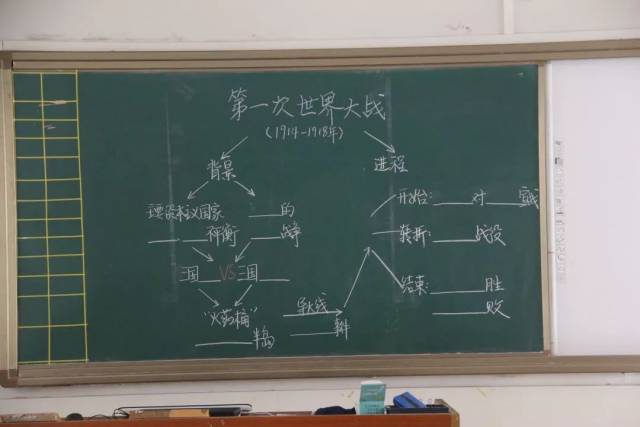 第一次世界大战
(1914-1918年)
背景
进程
主要资本主义国家
____ ____平衡
____的
____战争
三国____ VS 三国____
"火药桶"
______半岛
导火线
______事件
开始: ____对____宣战
转折: ____战役
结束: ____胜
____败